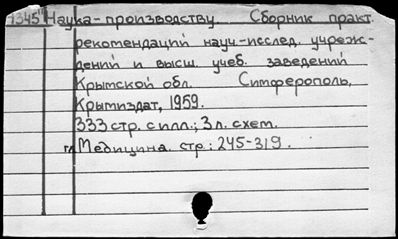 1345 Наука-производству. Сборник практ.
рекомендаций науч.-исслед. учреж-
дений и высш. учеб. заведений
Крымской обл. Симферополь,
Крымиздат, 1959.
333 стр. с илл.; 3 л. схем.
гл. Медицина. стр: 245-319.